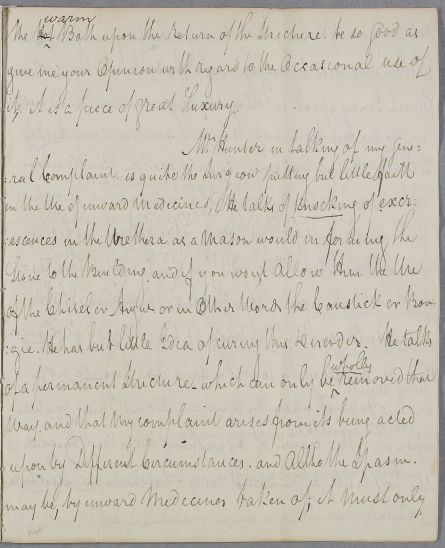 warm
the Hot Bath upon the Return of the Stricture. be so good as
give me your Opinion with regard to the Occasional use of
it, it is a piece of great Luxury.
Mr Hunter in talking of my gene-
:ral Complaint. is quite the Surgeon putting but little Faith
in the Use of inward medicines, He talks of knocking of excr-
:escences in the Urethera as a Mason would in forming the
Stone to the Building, and if you wont allow Him the Use
of the Chisel or in Other Words the Caustick or Bou-
:gie. He has but little Idea of curing this Disorder. He talks
of a permanent Stricture. which can only be wholly Removed that
Way, and that my complaint arises from its being acted
upon by Different Circumstances. and Altho the Spasm.
may be, by inward Medecines taken of; it must only